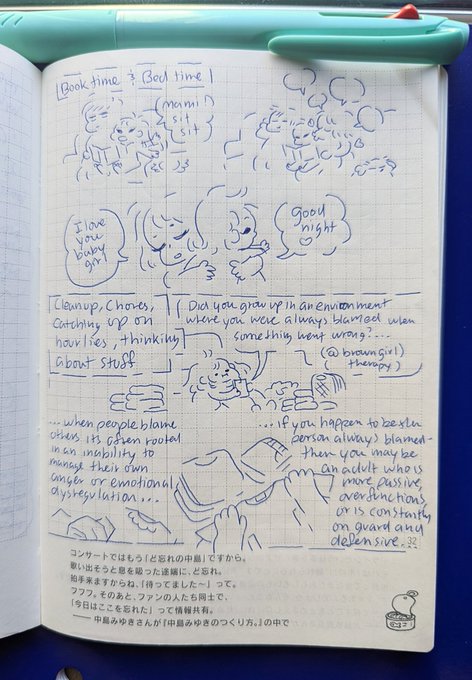 Book time & Bed time
mami
sit
sit
I love
you
baby
girl
good
night
Cleanup, Chores,
Catching up on
hourlies, thinking
about stuff
Did you grow up in an environment
where you were always blamed when
something went wrong?...
(@browngirl
therapy)
...when people blame
others its often rooted
in an inability to
manage their own
anger or emotional
dysregulation...
...if you happen to be the
person always blamed-
then you may be
an adult who is
more passive,
overfunctions,
or is constantly
on guard and
defensive...
32
コンサートではもう「ど忘れの中島」ですから。
歌い出そうと息を吸った途端に、ど忘れ。
拍手来ますからね、「待ってました〜」って。
フフフ。そのあと、ファンの人たち同士で、
「今日はここを忘れた」って情報共有。
――中島みゆきさんが『中島みゆきのつくり方。』の中で